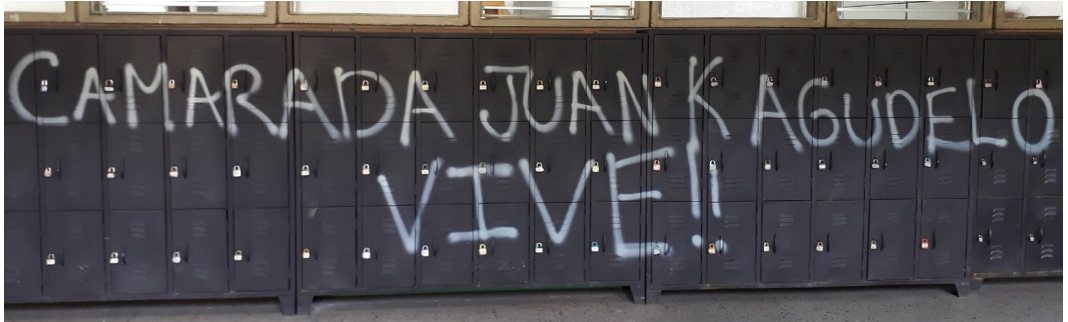 CAMARADA JUAN K AGUDELO
VIVE!!